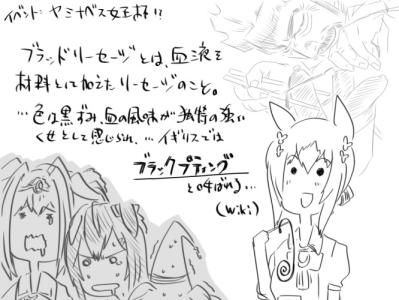 イベント: ヤミナベス女王杯!?
ブラッドソーセージとは、血液を
材料として加えたソーセージのこと。
…色は黒ずみ、血の風味が独特の強い
くせとして感じられ、…イギリスでは
ブラックプティング
と呼ばれる…
(Wiki)